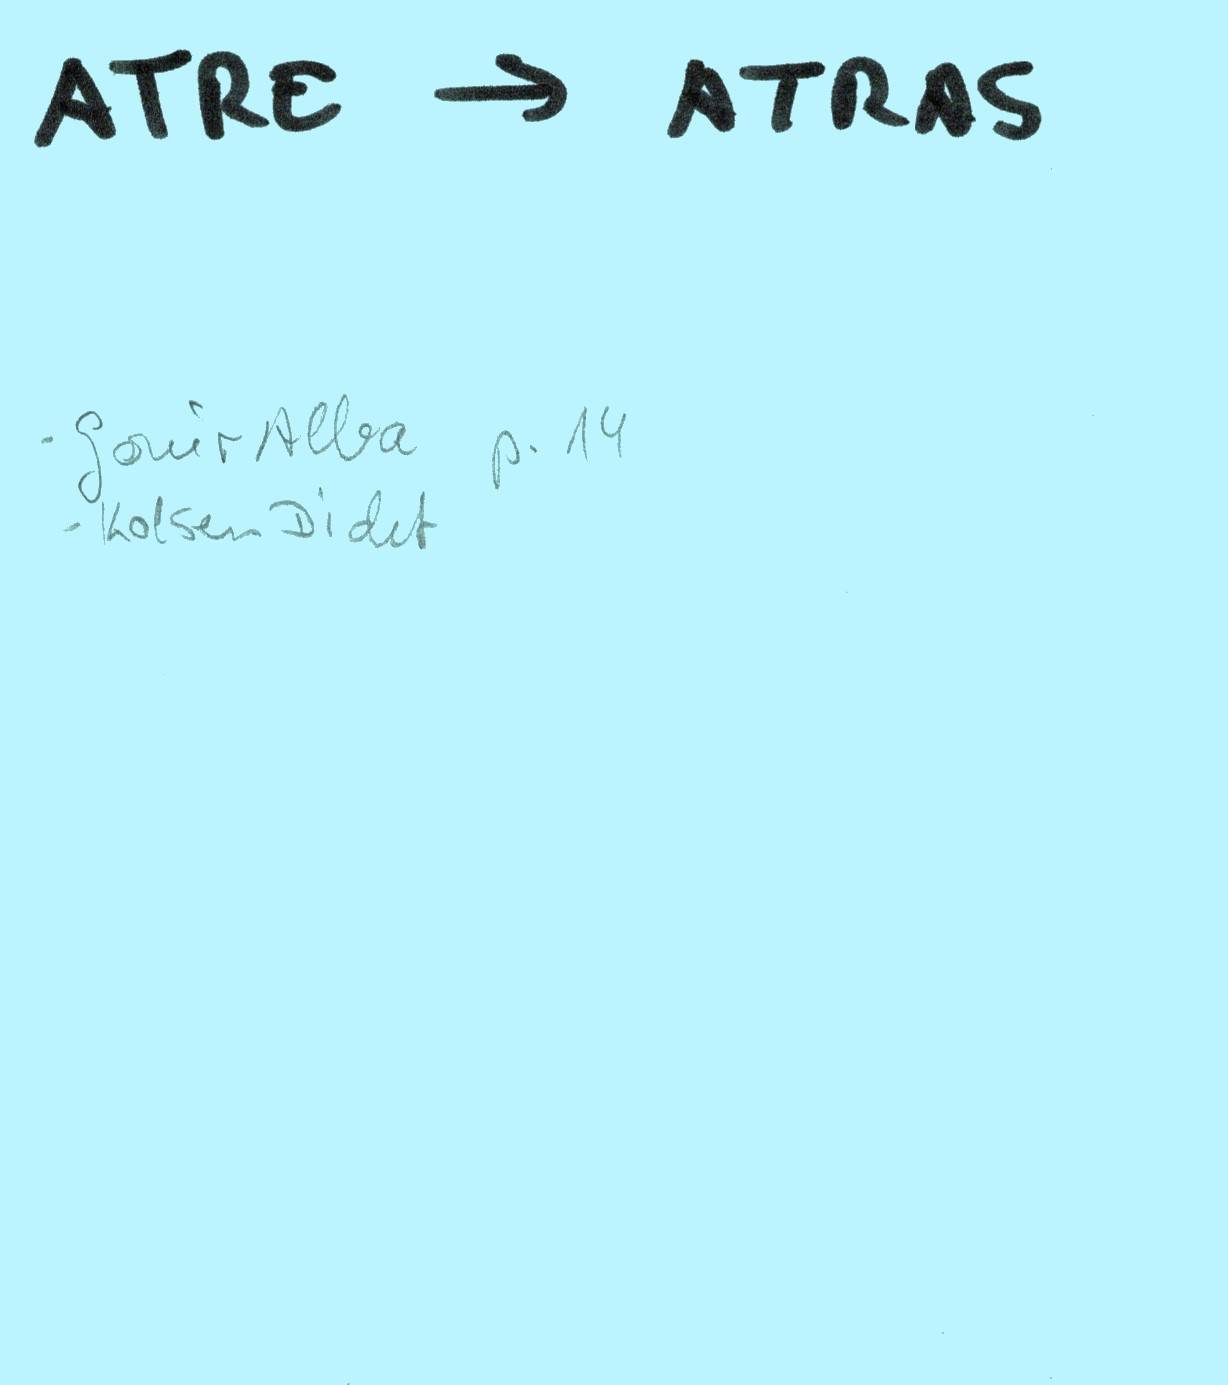 ATRE → ATRAS
- GouirAlba p. 14
- KolsenDidkt